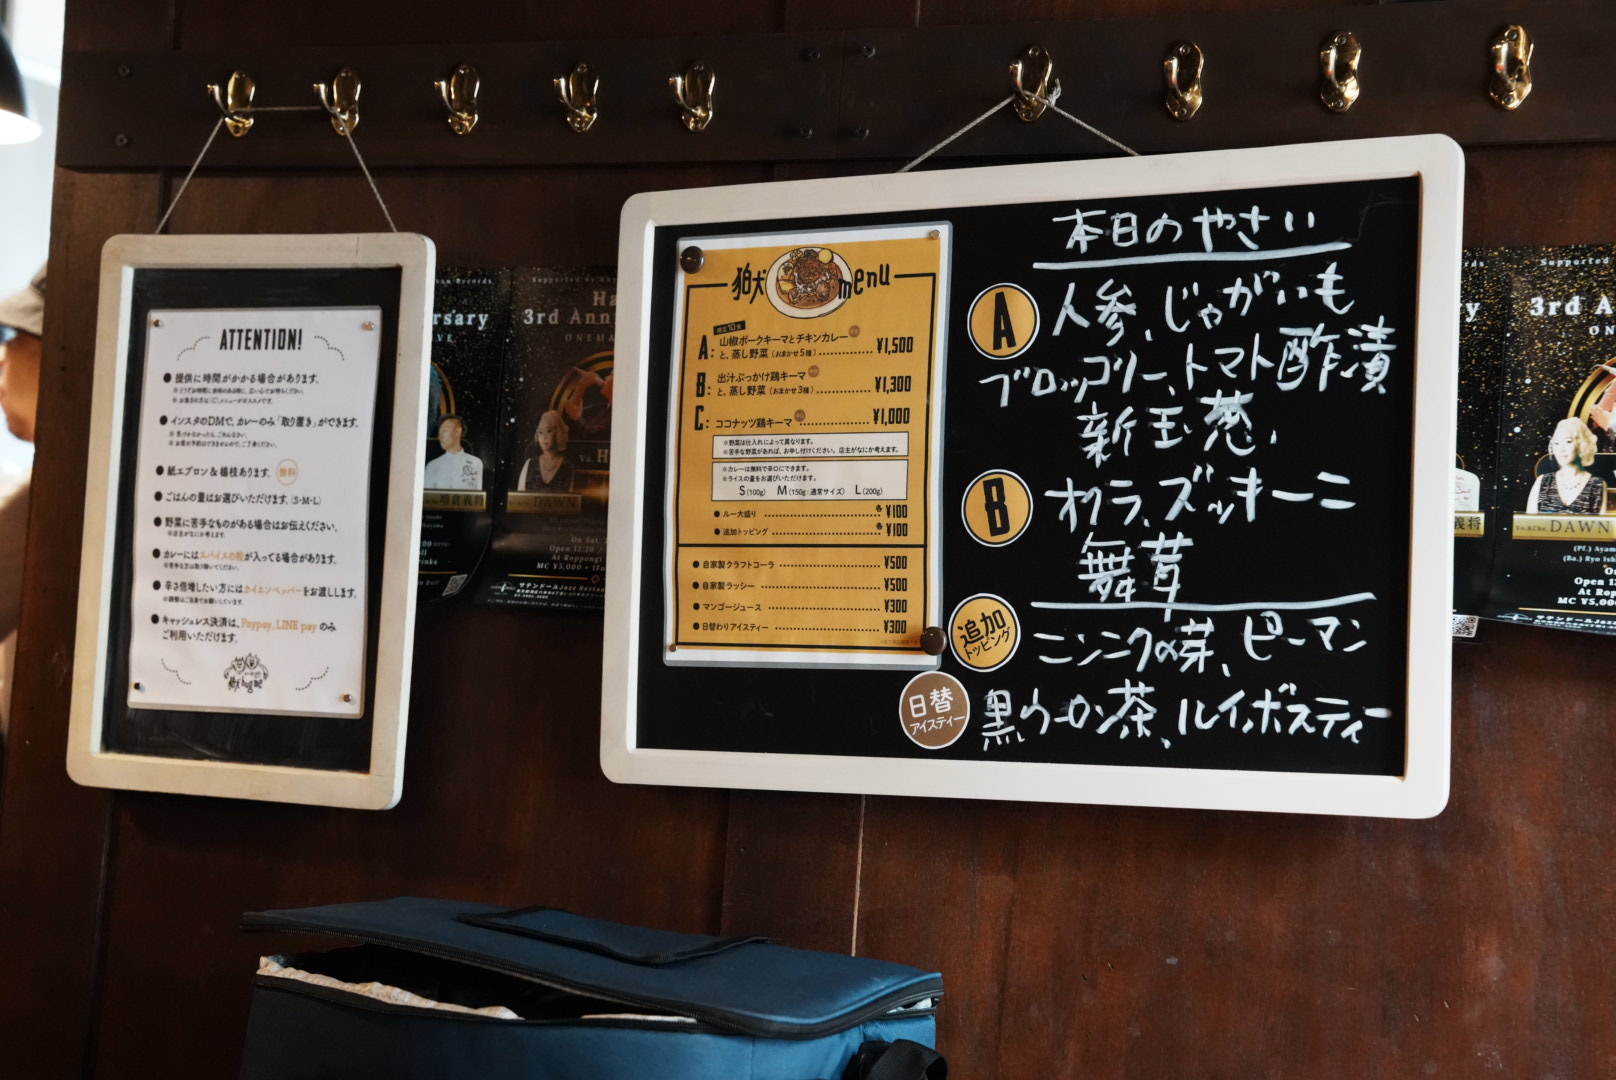 ATTENTION!
● 提供に時間がかかる場合があります。
● インスタのDMで、カレーのみ「取り置き」ができます。
● 紙エプロン＆楊枝あります。 無料
● ごはんの量はお選びいただけます。(S・M・L)
● 野菜に苦手なものがある場合はお伝えください。
※店主がなにか考えます。
● カレーにはスパイスの粒が入ってる場合があります。
● 辛さ倍増したい方にはカイエンペッパーをお渡しします。
● キャッシュレス決済は、Paypay、LINE payのみ
ご利用いただけます。
menu
限定10食
A: 山椒ポークキーマとチキンカレー
と、蒸し野菜(おまかせ5種) ¥1,500
B: 出汁ぶっかけ鶏キーマ
と、蒸し野菜(おまかせ3種) ¥1,300
C: ココナッツ鶏キーマ ¥1,000
※野菜は仕入れによって異なります。
※苦手な野菜があれば、お申し付けください。店主がなにか考えます。
※カレーは無料で辛口にできます。
※ライスの量をお選びいただけます。
S(100g) M(150g:通常サイズ) L(200g)
● ルー大盛り 各¥100
● 追加トッピング 各¥100
● 自家製クラフトコーラ ¥500
● 自家製ラッシー ¥500
● マンゴージュース ¥300
● 日替わりアイスティー ¥300
本日のやさい
A 人参、じゃがいも
ブロッコリー、トマト酢漬
新玉葱、
B オクラ、ズッキーニ
舞茸
追加トッピング ニンニクの芽、ピーマン
日替アイスティー 黒ウーロン茶、ルイボスティー
rsary
3rd Ann
ONEMA
DAWN
At Roppongi
サテンドール Jazz Restau
Supported
3rd A
ON
DAWN
(Pf.) Ayam
(Ba.) Ryo Ish
Open 12
At Rop
MC ¥5,000